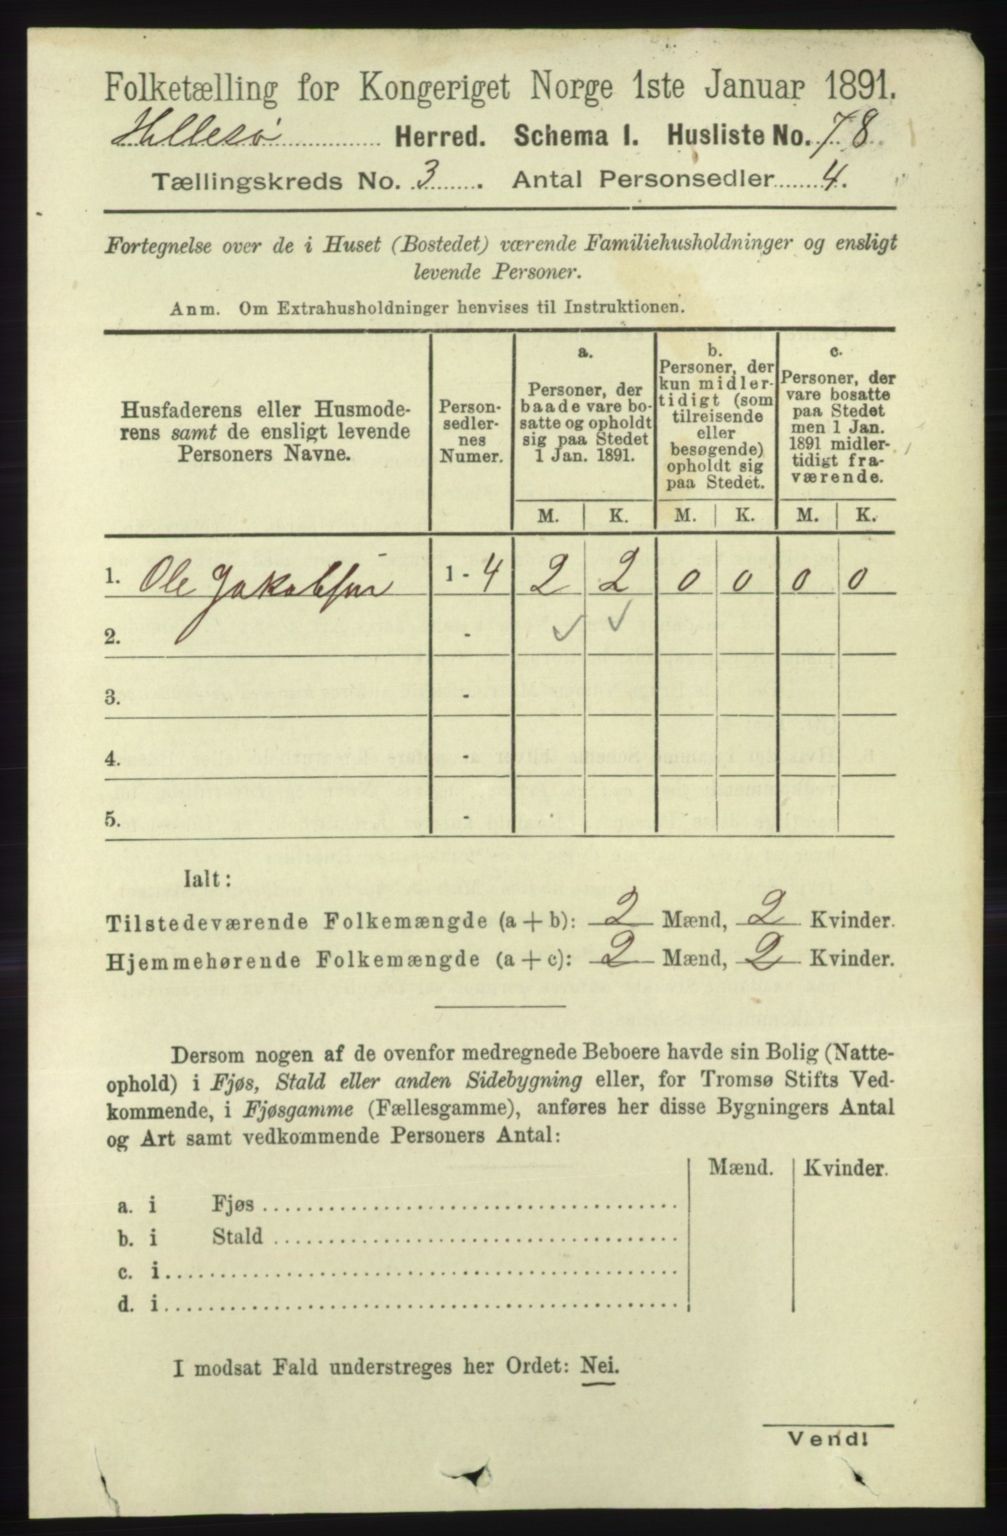 Folketælling for Kongeriget Norge 1ste Januar 1891.
Hillesø Herred. Schema I. Husliste No. 78
Tællingskreds No. 3. Antal Personsedler 4.
Fortegnelse over de i Huset (Bostedet) værende Familiehusholdninger og ensligt
levende Personer.
Anm. Om Extrahusholdninger henvises til Instruktionen.
Husfaderens eller Husmode-
rens samt de ensligt levende
Personers Navne.
Person-
sedler-
nes
Numer.
a.
Personer, der
baade vare bo-
satte og opholdt
sig paa Stedet
1 Jan. 1891.
b.
Personer, der
kun midler-
tidigt (som
tilreisende
eller
besøgende)
opholdt sig
paa Stedet.
c.
Personer, der
vare bosatte
paa Stedet
men 1 Jan.
1891 midler-
tidigt fra-
værende.
M. K. M. K. M. K.
1. Ole Jakobsen 1 - 4 2 2 0 0 0 0
2. -
3. -
4. -
5. -
Ialt:
Tilstedeværende Folkemængde (a + b): 2 Mænd, 2 Kvinder.
Hjemmehørende Folkemængde (a + c): 2 Mænd, 2 Kvinder.
Dersom nogen af de ovenfor medregnede Beboere havde sin Bolig (Natte-
ophold) i Fjøs, Stald eller anden Sidebygning eller, for Tromsø Stifts Ved-
kommende, i Fjøsgamme (Fællesgamme), anføres her disse Bygningers Antal
og Art samt vedkommende Personers Antal:
Mænd. Kvinder.
a. i Fjøs
b. i Stald
c. i
d. i
I modsat Fald understreges her Ordet: Nei.
Vend!